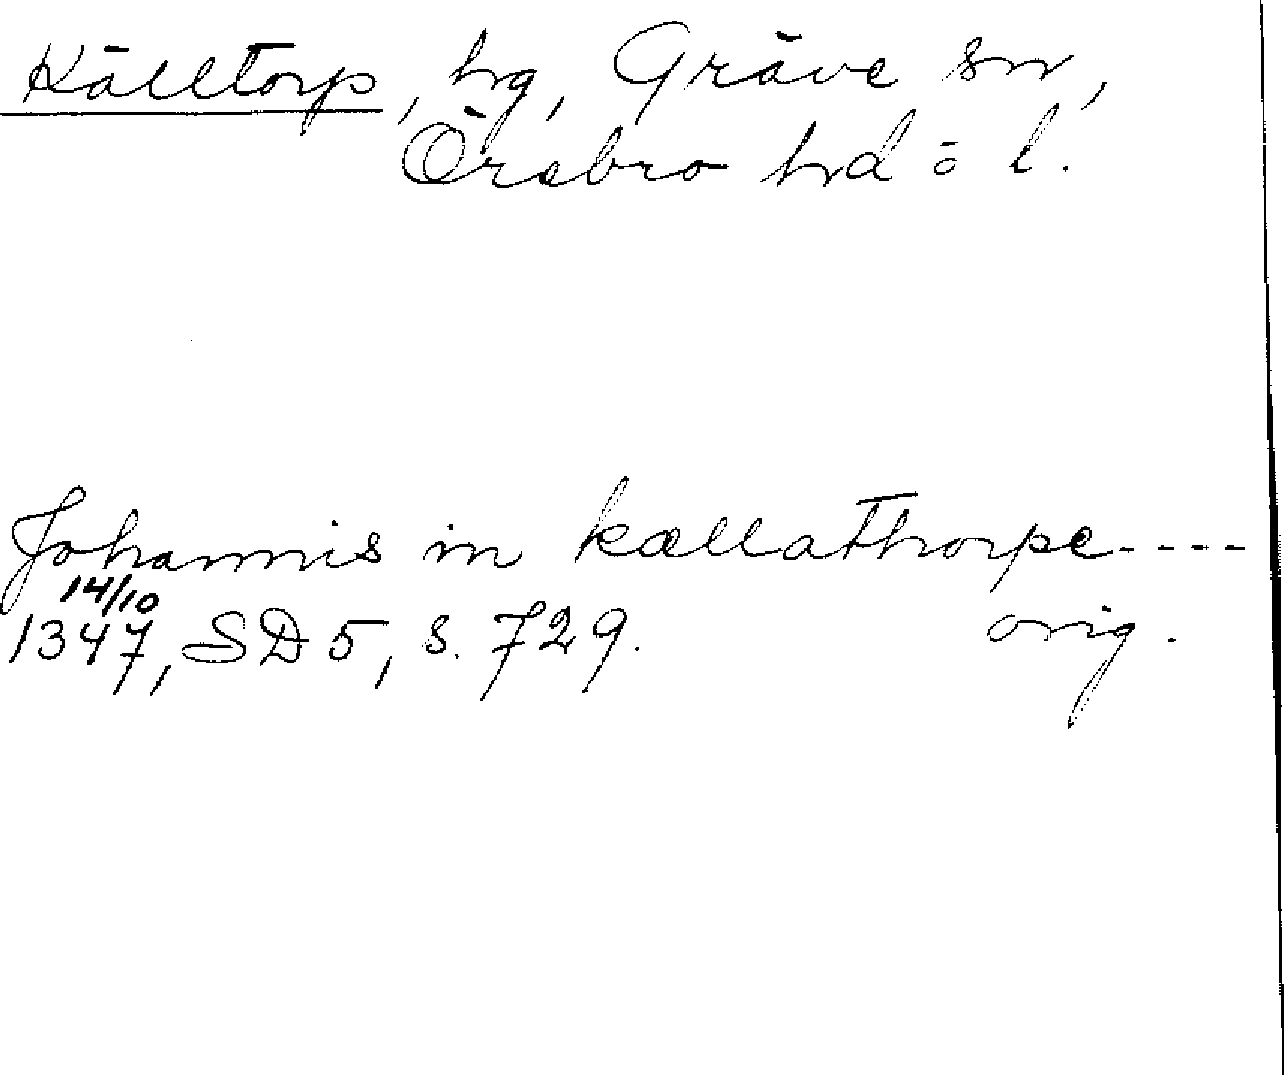 Källtorp, hg, Gräve sn,
Örebro hd o l.
Johannis in kællathorpe----
14/10
1347, SD 5, s. 729. orig.